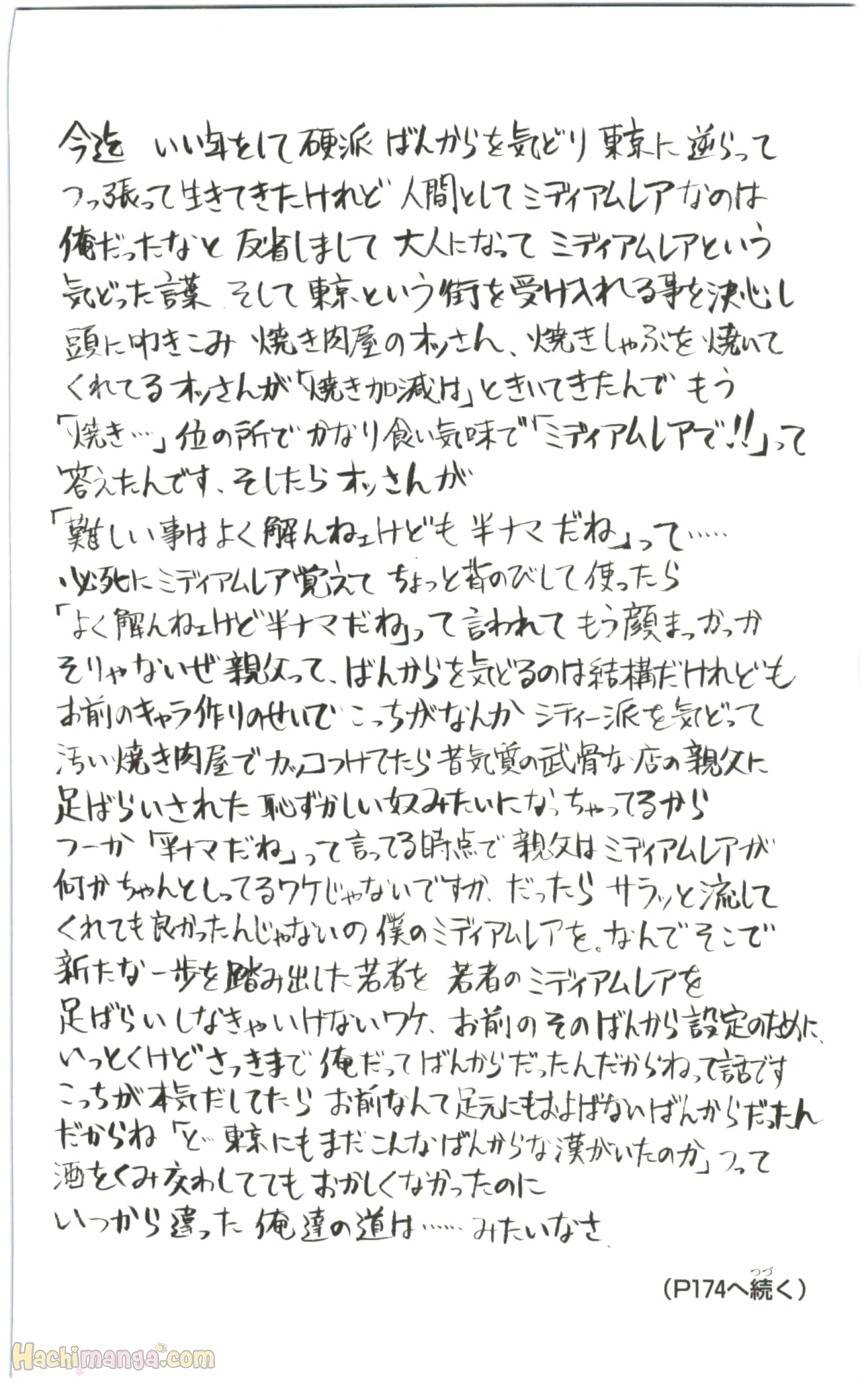 今迄 いい年をして硬派 ばんからを気どり 東京に逆らって
つっ張って生きてきたけれど 人間としてミディアムレアなのは
俺だったなと 反省しまして 大人になって ミディアムレアという
気どった言葉 そして東京という街を受け入れる事を決心し
頭に叩きこみ 焼き肉屋のオッさん、焼きしゃぶを焼いて
くれてるオッさんが「焼き加減は」ときいてきたんで もう
「焼き…」位の所で かなり食い気味で「ミディアムレアで!!」って
答えたんです、そしたらオッさんが
「難しい事はよく解んねェけども 半ナマだね」って……
必死にミディアムレア覚えて ちょっと背のびして使ったら
「よく解んねェけど半ナマだね」って言われて もう顔まっかっか
そりゃないぜ親父って、ばんからを気どるのは結構だけれども
お前のキャラ作りのせいで こっちがなんか シティー派を気どって
汚い焼き肉屋でカッコつけてたら昔気質の武骨な店の親父に
足ばらいされた 恥ずかしい奴みたいになっちゃってるから
つーか「半ナマだね」って言ってる時点で 親父はミディアムレアが
何かちゃんとしってるワケじゃないですか、だったら サラッと流して
くれても良かったんじゃないの 僕のミディアムレアを。なんでそこで
新たな一歩を踏み出した若者を 若者のミディアムレアを
足ばらいしなきゃいけないワケ、お前の そのばんから設定のために、
いっとくけどさっきまで 俺だってばんからだったんだからねって話です
こっちが本気だしてたら お前なんて足元にもおよばないばんからだったん
だからね「と… 東京にもまだこんなばんからな漢がいたのか」つって
酒をくみ交わしてても おかしくなかったのに
いつから違った 俺達の道は…… みたいなさ
(P174へ続く)
つづ
Hachimanga.com